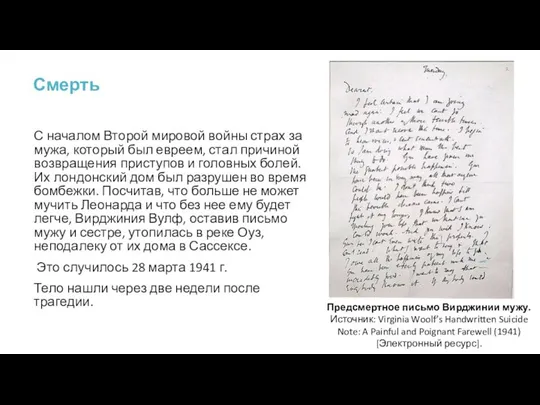 Смерть
С началом Второй мировой войны страх за
мужа, который был евреем, стал причиной
возвращения приступов и головных болей.
Их лондонский дом был разрушен во время
бомбежки. Посчитав, что больше не может
мучить Леонарда и что без нее ему будет
легче, Вирджиния Вулф, оставив письмо
мужу и сестре, утопилась в реке Оуз,
неподалеку от их дома в Сассексе.
Это случилось 28 марта 1941 г.
Тело нашли через две недели после
трагедии.
Tuesday.
Dearest,
I feel certain that I am going
mad again. I feel we cant go
through another of those terrible times.
And I shant recover this time. I begin
to hear voices, cant concentrate.
So I am doing what seems the best
thing to do. You have given me
the greatest possible happiness. You
have been in every way all that anyone
could be. I dont think two
people could have been happier till
this terrible disease came. I cant
fight it any longer, I know that I am
spoiling your life, that without me you
could work. And you will I know.
Предсмертное письмо Вирджинии мужу.
Источник: Virginia Woolf’s Handwritten Suicide
Note: A Painful and Poignant Farewell (1941)
[Электронный ресурс].